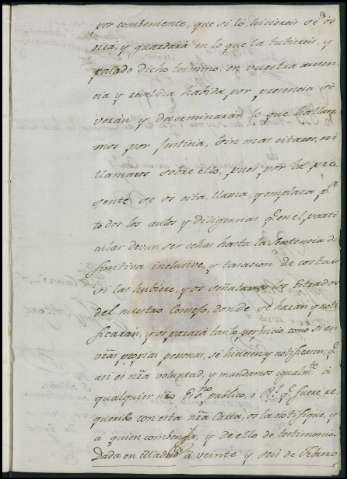 vor combeniente, que si lo hiciereis se os
oirá, y guardará en lo que la tubiereis, y
pasado dicho termino en vuestra ausen
cia y reveldia havida por presencia se
verán y determinarán lo que hallare
mos por justicia, sin mas citaros, ni
llamaros sobre ello, pues por la pre
sente se os cita llama, y emplaza pª
todos los autos y diligencias qe en el parti
cular devan ser echas hasta la Sentencia di
finitiva inclusive, y tasacion de costas
si las hubiere, y os señalamos los Estrados
del nuestro Consejo, donde se harán y noti
ficarán, y os parará tanto perjuicio como si en
vras propias personas, se hiciesen y notificasen, qe
asi es nra voluntad, y mandamos
qualquier nro ssno publico, o Rl qe fuere re
querido con esta nra Carta, os la notifique, y
a quien combenga, y de ello de testimonio.
Dada en Madrid a veinte y seis de